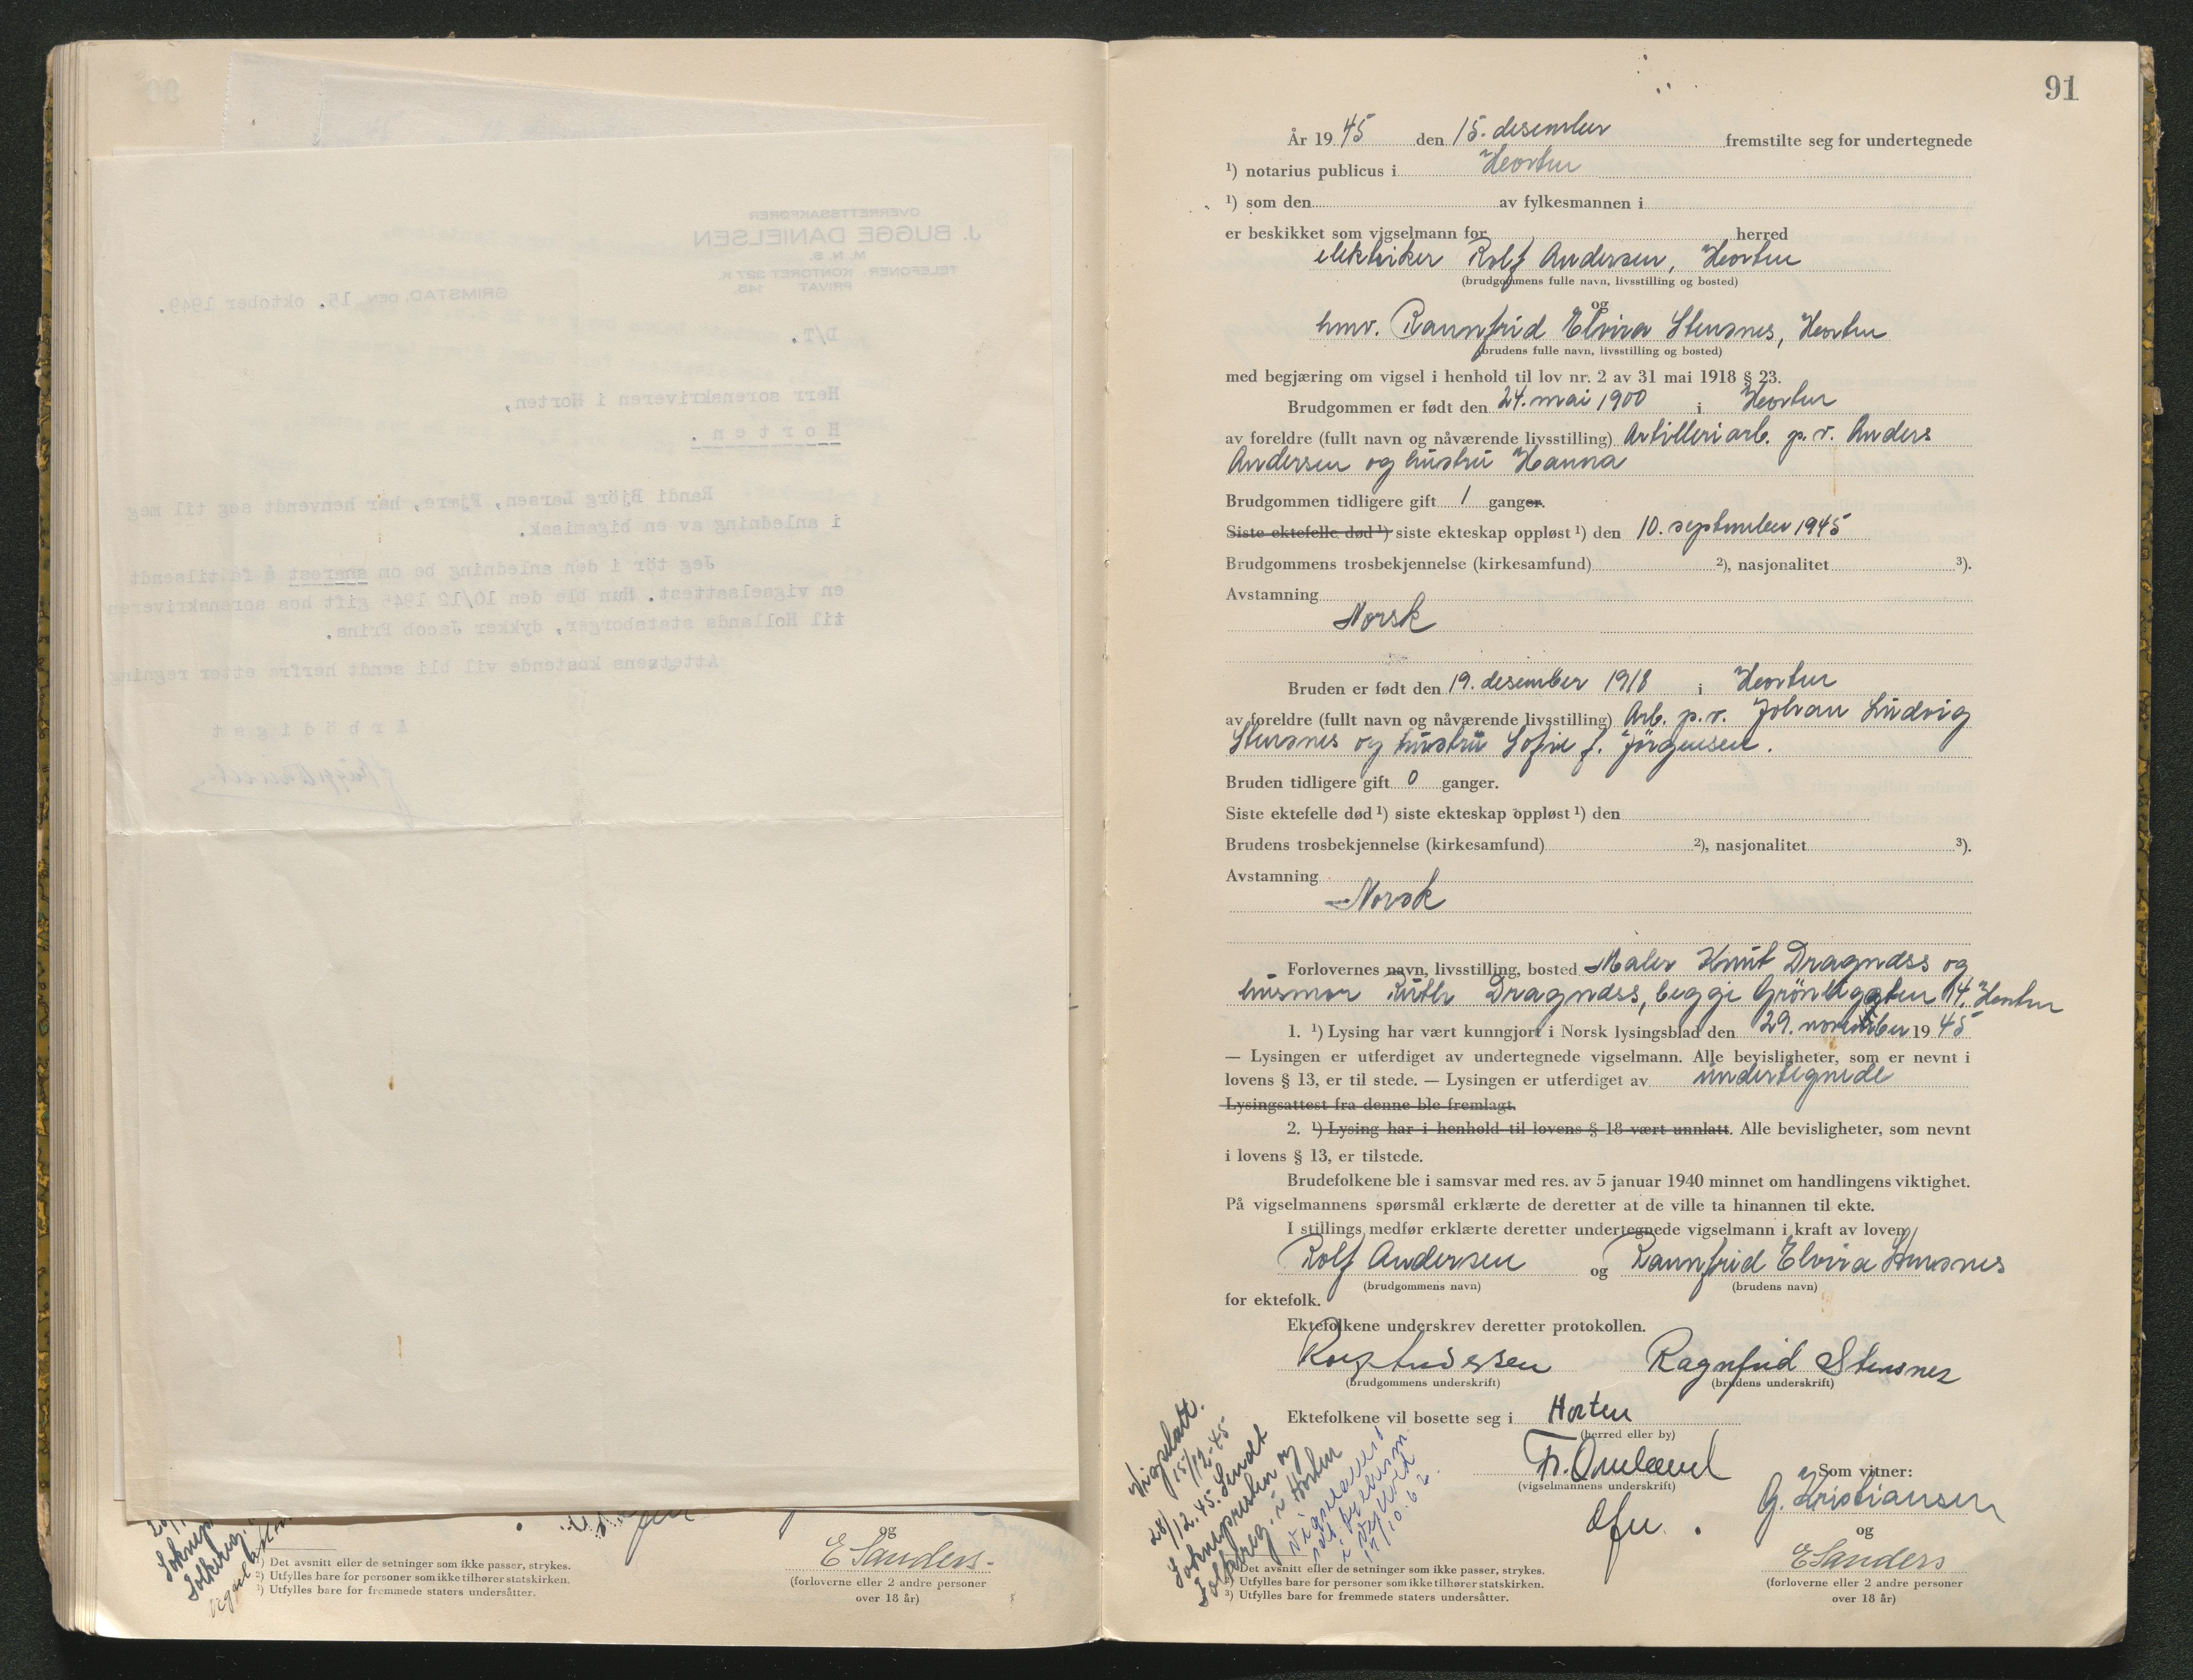 OVERRETTSSAKFØRER
J. BUGGE DANIELSEN
M. N. S.
TELEFONER: KONTORET 327 K.
PRIVAT 145.
GRIMSTAD, DEN 15. oktober 1949.
D/T.
Herr sorenskriveren i Horten,
Horten.
Randi Björg Larsen, Fjære, har henvendt seg til meg
i anledning av en bigamisak.
Jeg tör i den anledning be om snarest å få tilsendt
en vigselsattest. Hun ble den 10/12 1945 gift hos sorenskriveren
til Hollands statsborger, dykker Jacob Prins.
Attestens kostende vil bli sendt herfra etter regning
Arbödigst
og
E Sanders.
(forloverne eller 2 andre personer
over 18 år)
¹) Det avsnitt eller de setninger som ikke passer, strykes.
²) Utfylles bare for personer som ikke tilhører statskirken.
³) Utfylles bare for fremmede staters undersåtter.
91
År 1945 den 15. desember fremstilte seg for undertegnede
¹) notarius publicus i Horten
¹) som den av fylkesmannen i
er beskikket som vigselmann for herred
elektriker Rolf Andersen, Horten
(brudgommens fulle navn, livsstilling og bosted)
og
hmv. Rannfrid Elvira Stensnes, Horten
(brudens fulle navn, livsstilling og bosted)
med begjæring om vigsel i henhold til lov nr. 2 av 31 mai 1918 § 23.
Brudgommen er født den 24. mai 1900 i Horten
av foreldre (fullt navn og nåværende livsstilling) Artilleriarb. p.v. Anders
Andersen og hustru Hanna
Brudgommen tidligere gift 1 ganger.
Siste ektefelle død ¹) siste ekteskap oppløst ¹) den 10. september 1945
Brudgommens trosbekjennelse (kirkesamfund) ²), nasjonalitet ³).
Avstamning
Norsk
Bruden er født den 19. desember 1918 i Horten
av foreldre (fullt navn og nåværende livsstilling) Arb. p.v. Johan Ludvig
Stensnes og hustru Sofie f. Jörgensen.
Bruden tidligere gift 0 ganger.
Siste ektefelle død ¹) siste ekteskap oppløst ¹) den
Brudens trosbekjennelse (kirkesamfund) ²), nasjonalitet ³).
Avstamning
Norsk
Forlovernes navn, livsstilling, bosted Maler Knut Dragnæss og
husmor Ruth Dragnæss, begge Grönligaten 14, Horten
1. ¹) Lysing har vært kunngjort i Norsk lysingsblad den 29. november 1945
— Lysingen er utferdiget av undertegnede vigselmann. Alle bevisligheter, som er nevnt i
lovens § 13, er til stede. — Lysingen er utferdiget av undertegnede
Lysingsattest fra denne ble fremlagt.
2. ¹) Lysing har i henhold til lovens § 18 vært unnlatt. Alle bevisligheter, som nevnt
i lovens § 13, er tilstede.
Brudefolkene ble i samsvar med res. av 5 januar 1940 minnet om handlingens viktighet.
På vigselmannens spørsmål erklærte de deretter at de ville ta hinannen til ekte.
I stillings medfør erklærte deretter undertegnede vigselmann i kraft av loven
Rolf Andersen og Rannfrid Elvira Stensnes
(brudgommens navn) (brudens navn)
for ektefolk.
Ektefolkene underskrev deretter protokollen.
Rolf Andersen Ragnfrid Stensnes
(brudgommens underskrift) (brudens underskrift)
Ektefolkene vil bosette seg i Horten
(herred eller by)
Fr. Omland
(vigselmannens underskrift)
Som vitner:
G. Kristiansen
og
E Sanders
(forloverne eller 2 andre personer
over 18 år)
Vigselatt.
15/12-45
28/12.45. Sendt
Soknepresten og
Folkereg. i Horten
17/10.62.
¹) Det avsnitt eller de setninger som ikke passer, strykes.
²) Utfylles bare for personer som ikke tilhører statskirken.
³) Utfylles bare for fremmede staters undersåtter.